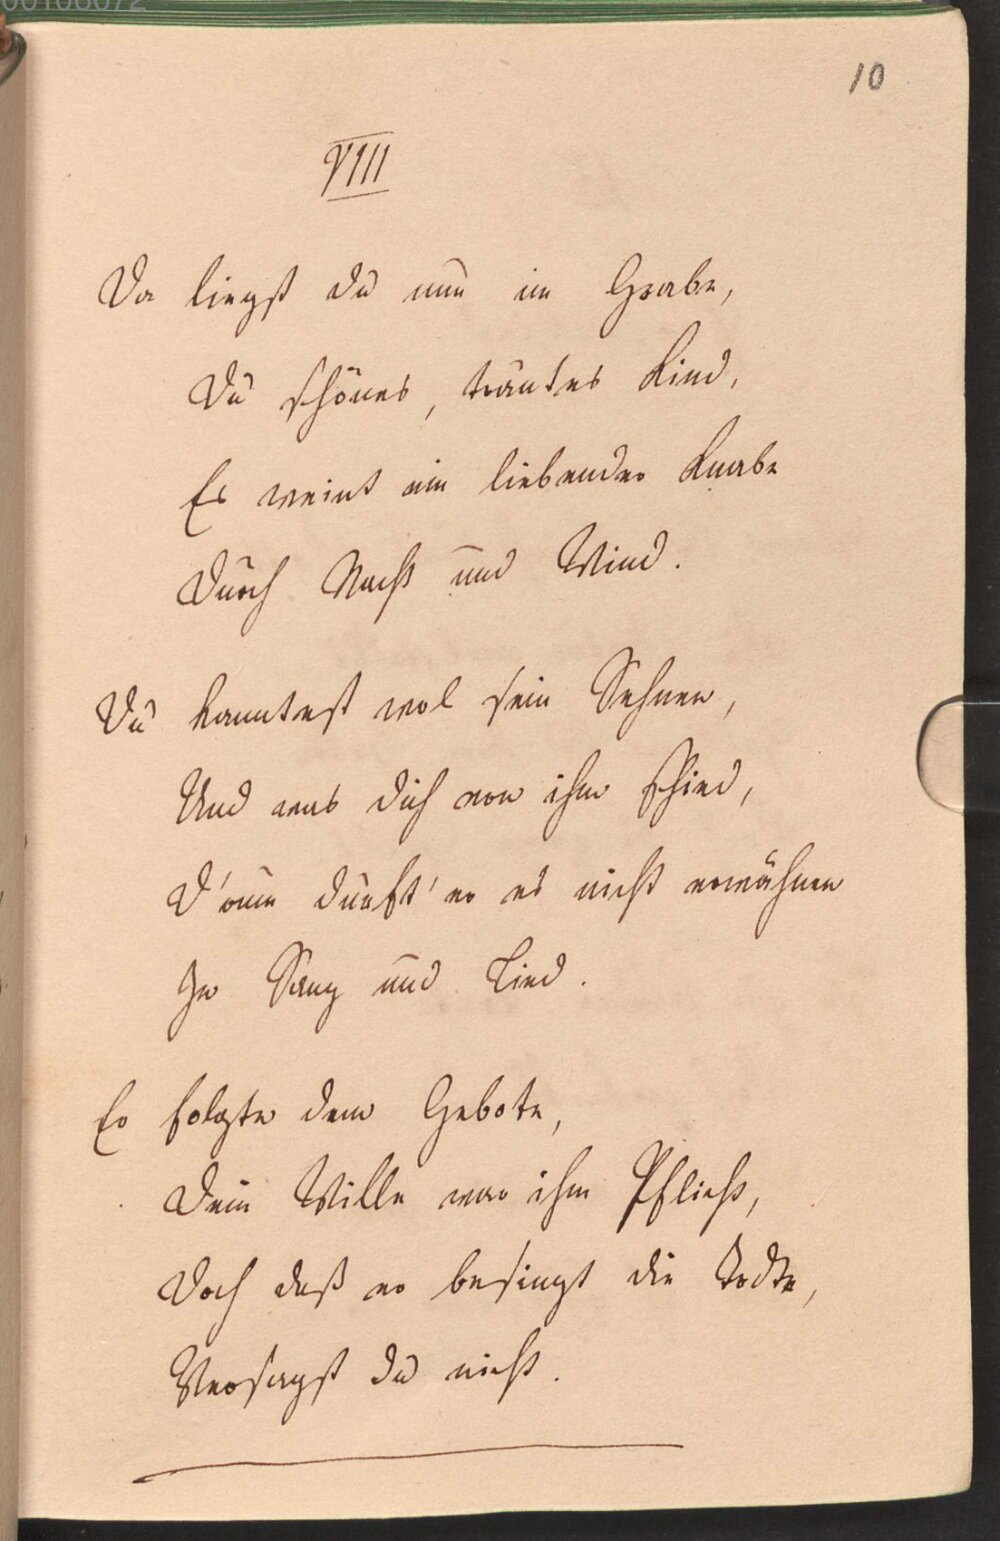 00106072
10
VIII
Da liegst du nun im Grabe,
Du schönes, trautes Kind,
Es weint ein liebender Knabe
Durch Nacht und Wind.
Du kanntest wol sein Sehnen,
Und was dich von ihm schied,
D'rum durft' er es nicht erwähnen
In Sang und Lied.
Er folgte dem Gebote,
Dein Wille war ihm Pflicht,
Doch daß er besingt die Todte,
Versagst du nicht.